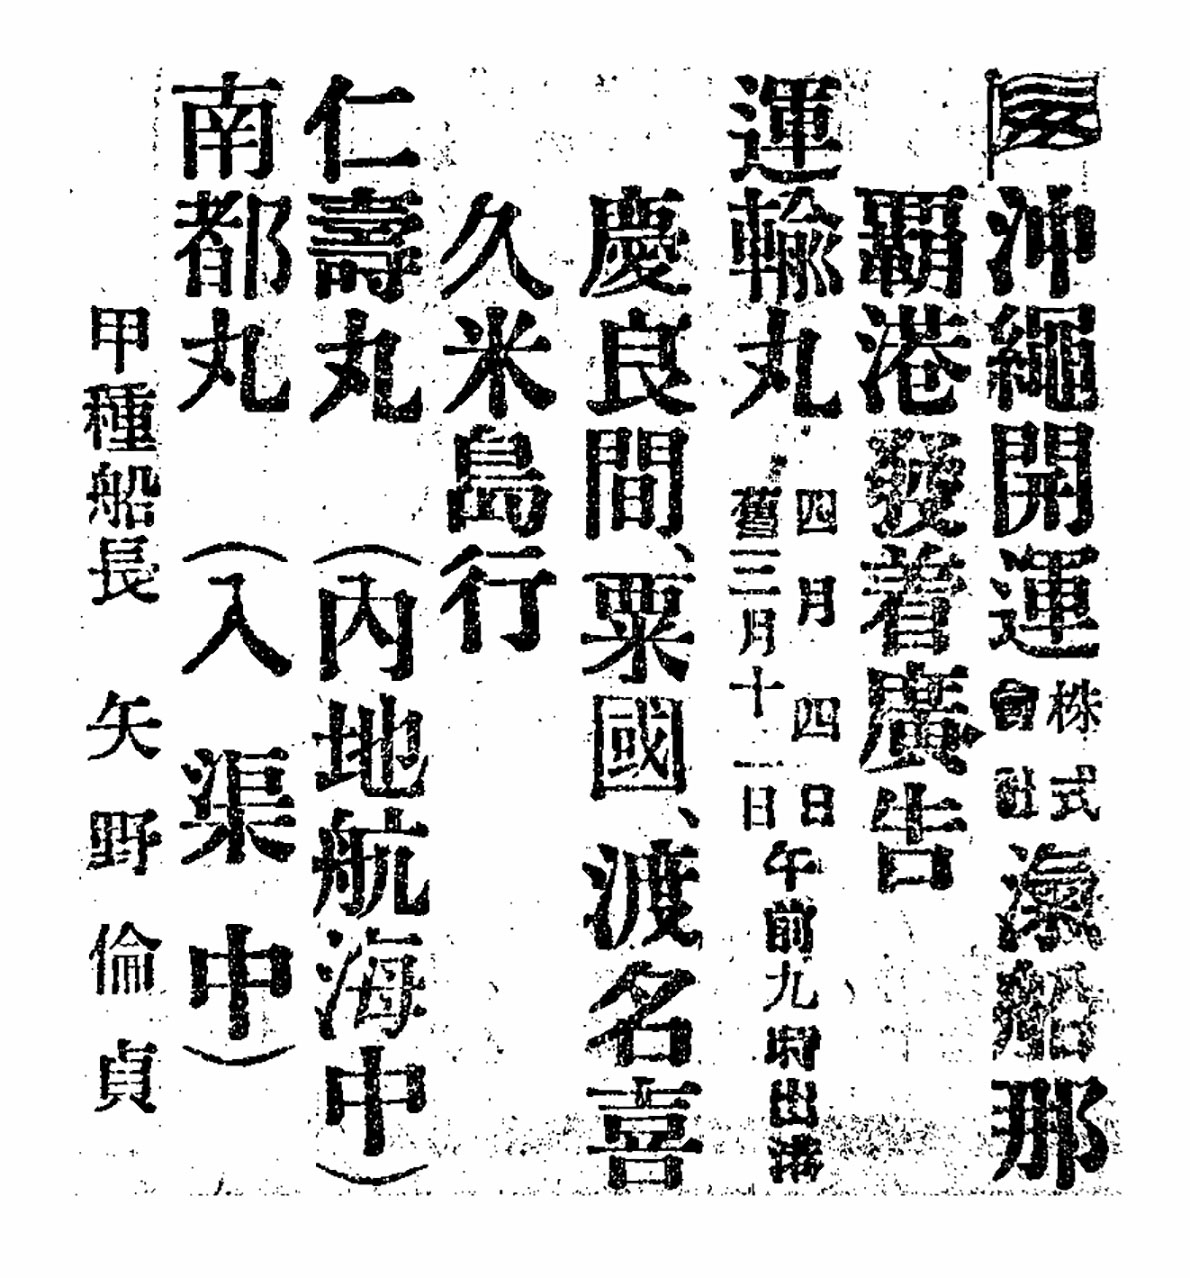 沖繩開運株式會社滊船那
覇港發着廣告
運輸丸
四月四日
舊三月十一日
午前九時出港
慶良間、粟國、渡名喜
久米島行
仁壽丸（内地航海中）
南都丸（入渠中）
甲種船長 矢野倫貞